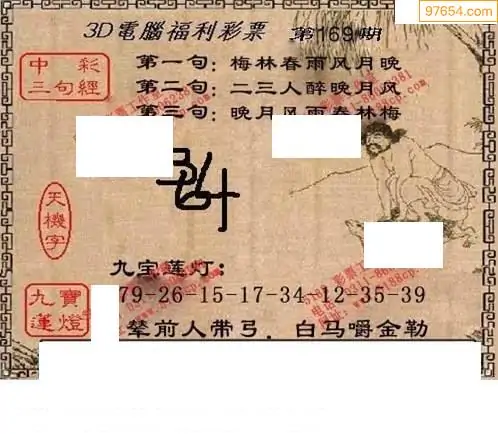 97654.com
3D電腦福利彩票 第169期
中彩
三句經
第一句：梅林春雨风月晚
第二句：二三人醉晚月风
第三句：晚月风雨春林梅
天機字
九宝莲灯：
九寶蓮燈
79-26-15-17-34 12-35-39
辇前人带弓．白马嚼金勒